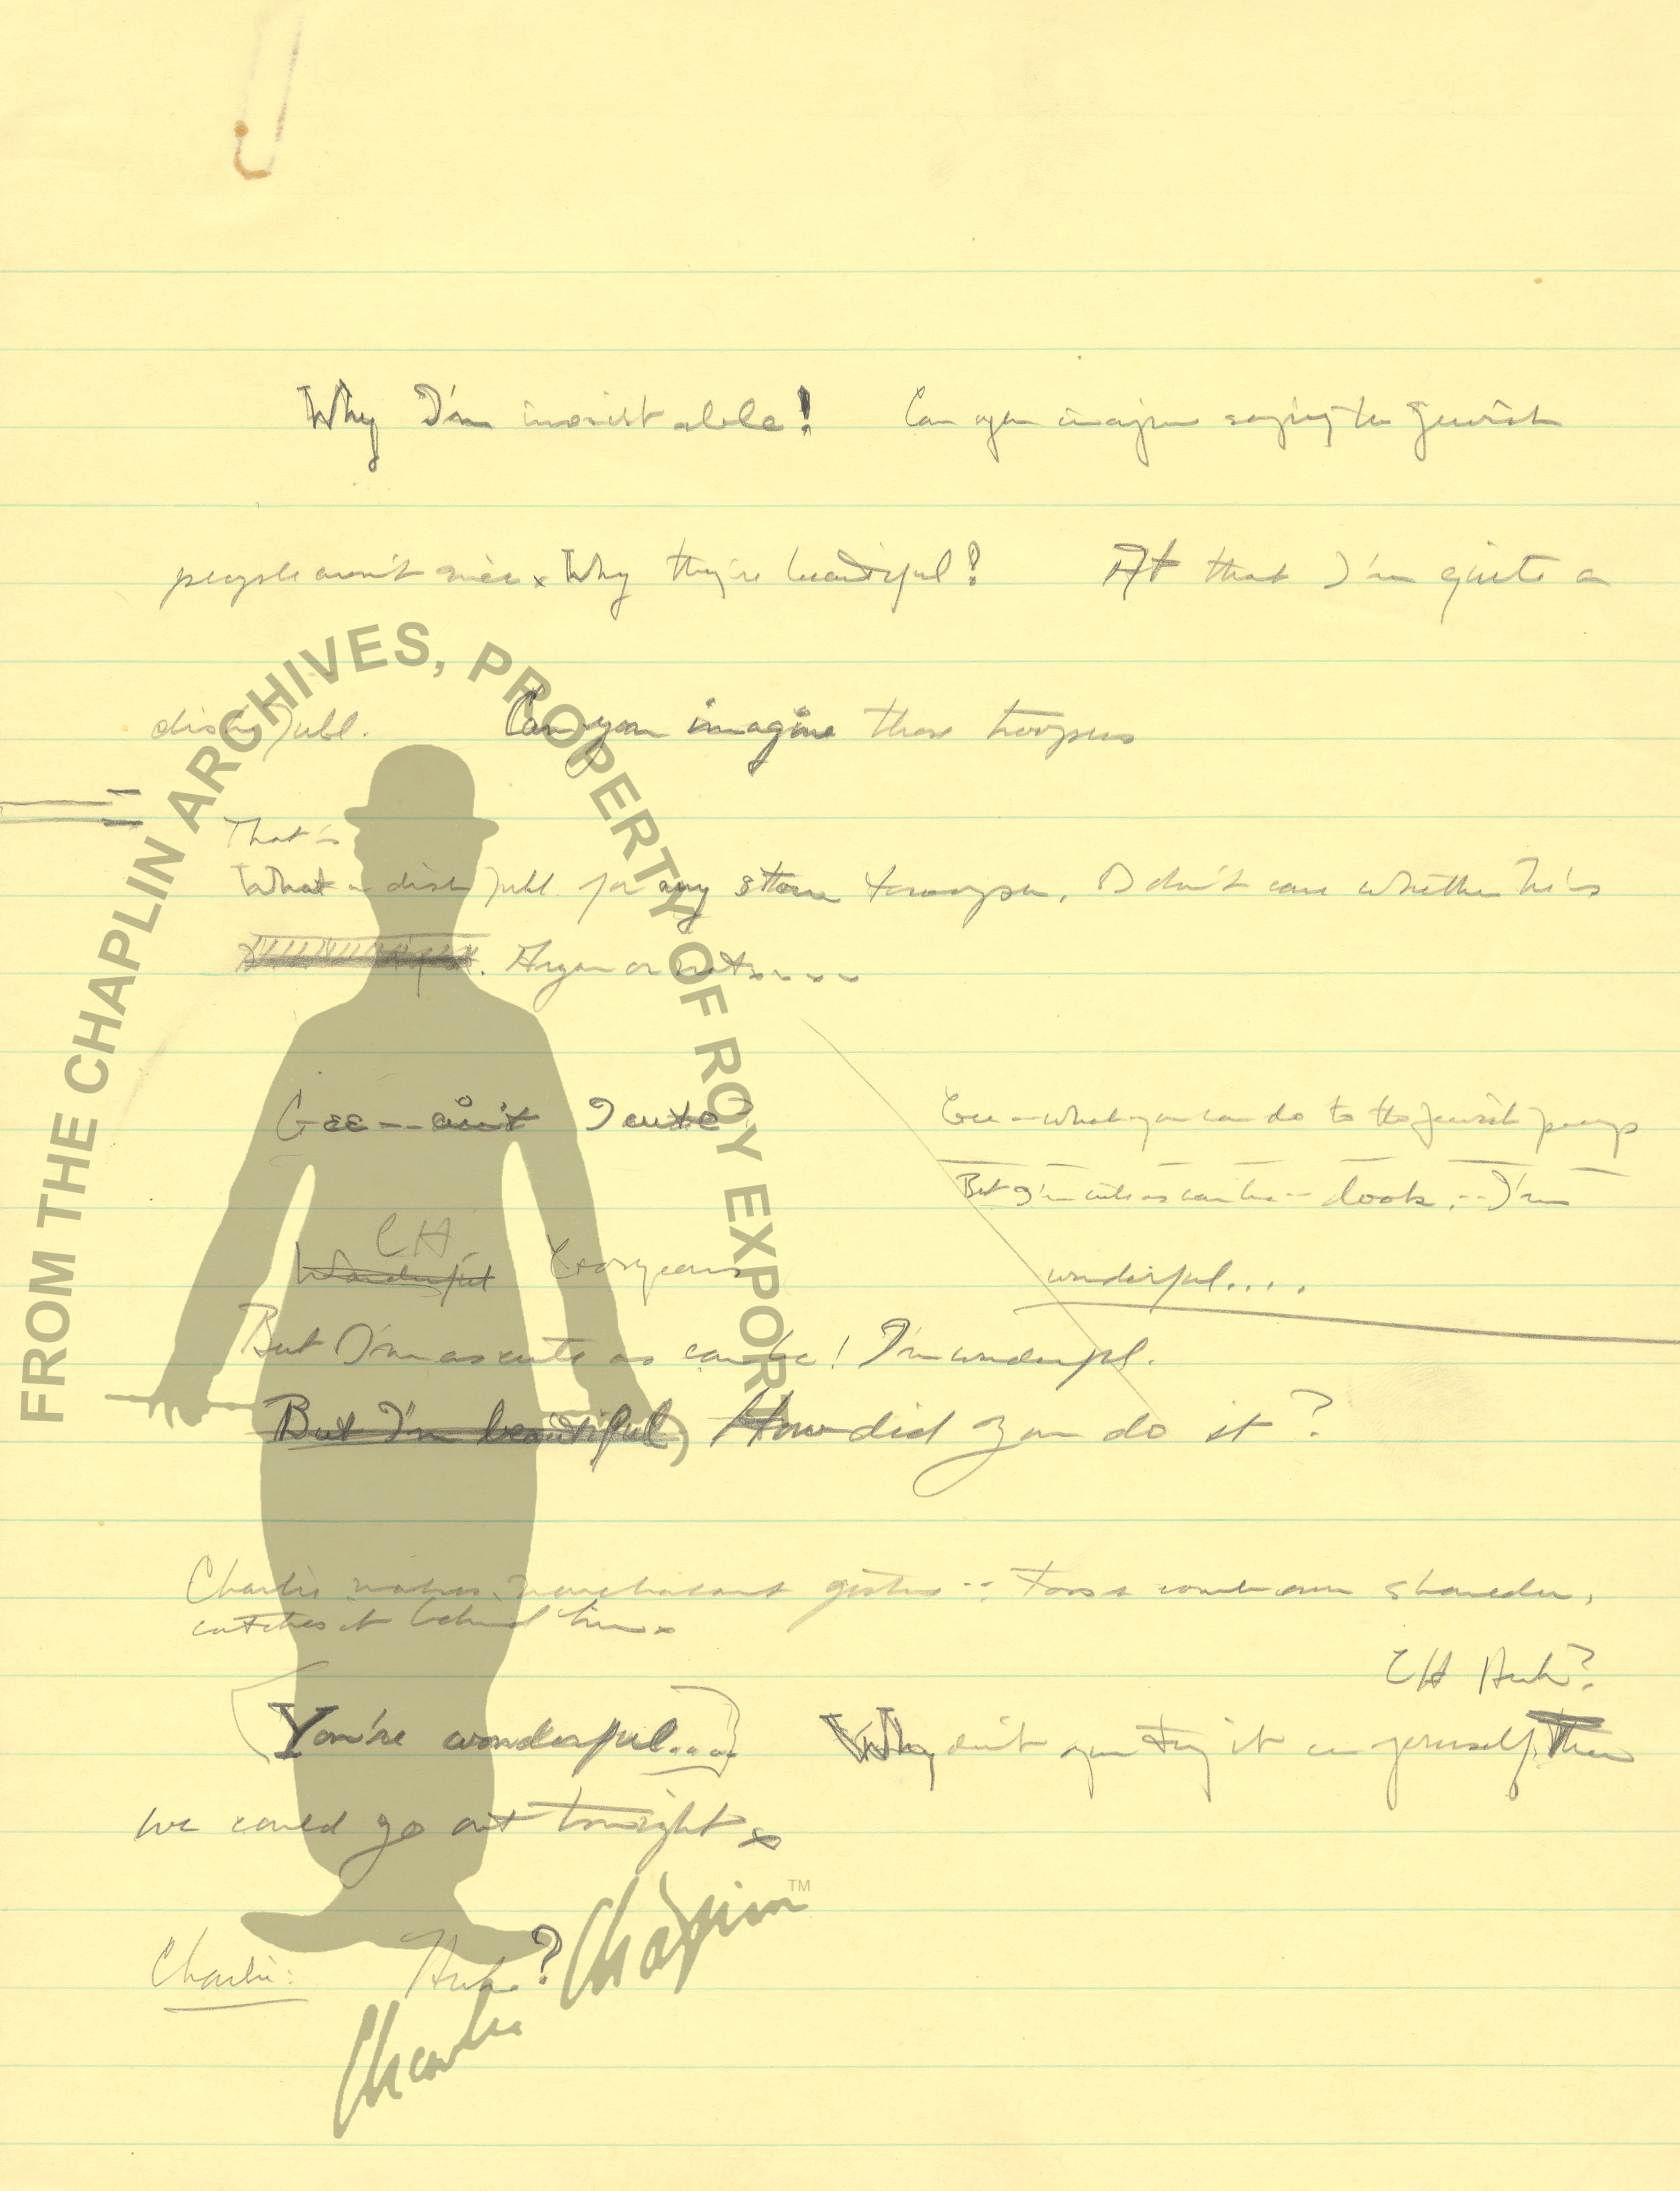 Why I'm irresistable! Can you imagine saying the Jewish
people aren't nice x Why they're beautiful! At that I'm quite a
dishy Jubl. Can you imagine those troopers
That's
What a dish Jubl. for any storm trooper, I don't care whether he's
Aryan or not....
Gee -- ain't I cute?
Gee - what you can do to the Jewish peop
But I'm cute as can be -- look -- I'm
wonderful....
CH
Wonderful Gorgeous
But I'm as cute as can be! I'm wonderful.
But I'm beautiful How did you do it?
Charlie makes nonchalant gesture -- Toss comb over shoulder,
catches it behind him x
CH Huh?
You're wonderful.... Why don't you try it on yourself, Then
we could go out tonight x
Charlie: Huh?
FROM THE CHAPLIN ARCHIVES, PROPERTY OF ROY EXPORT
Charlie Chaplin™